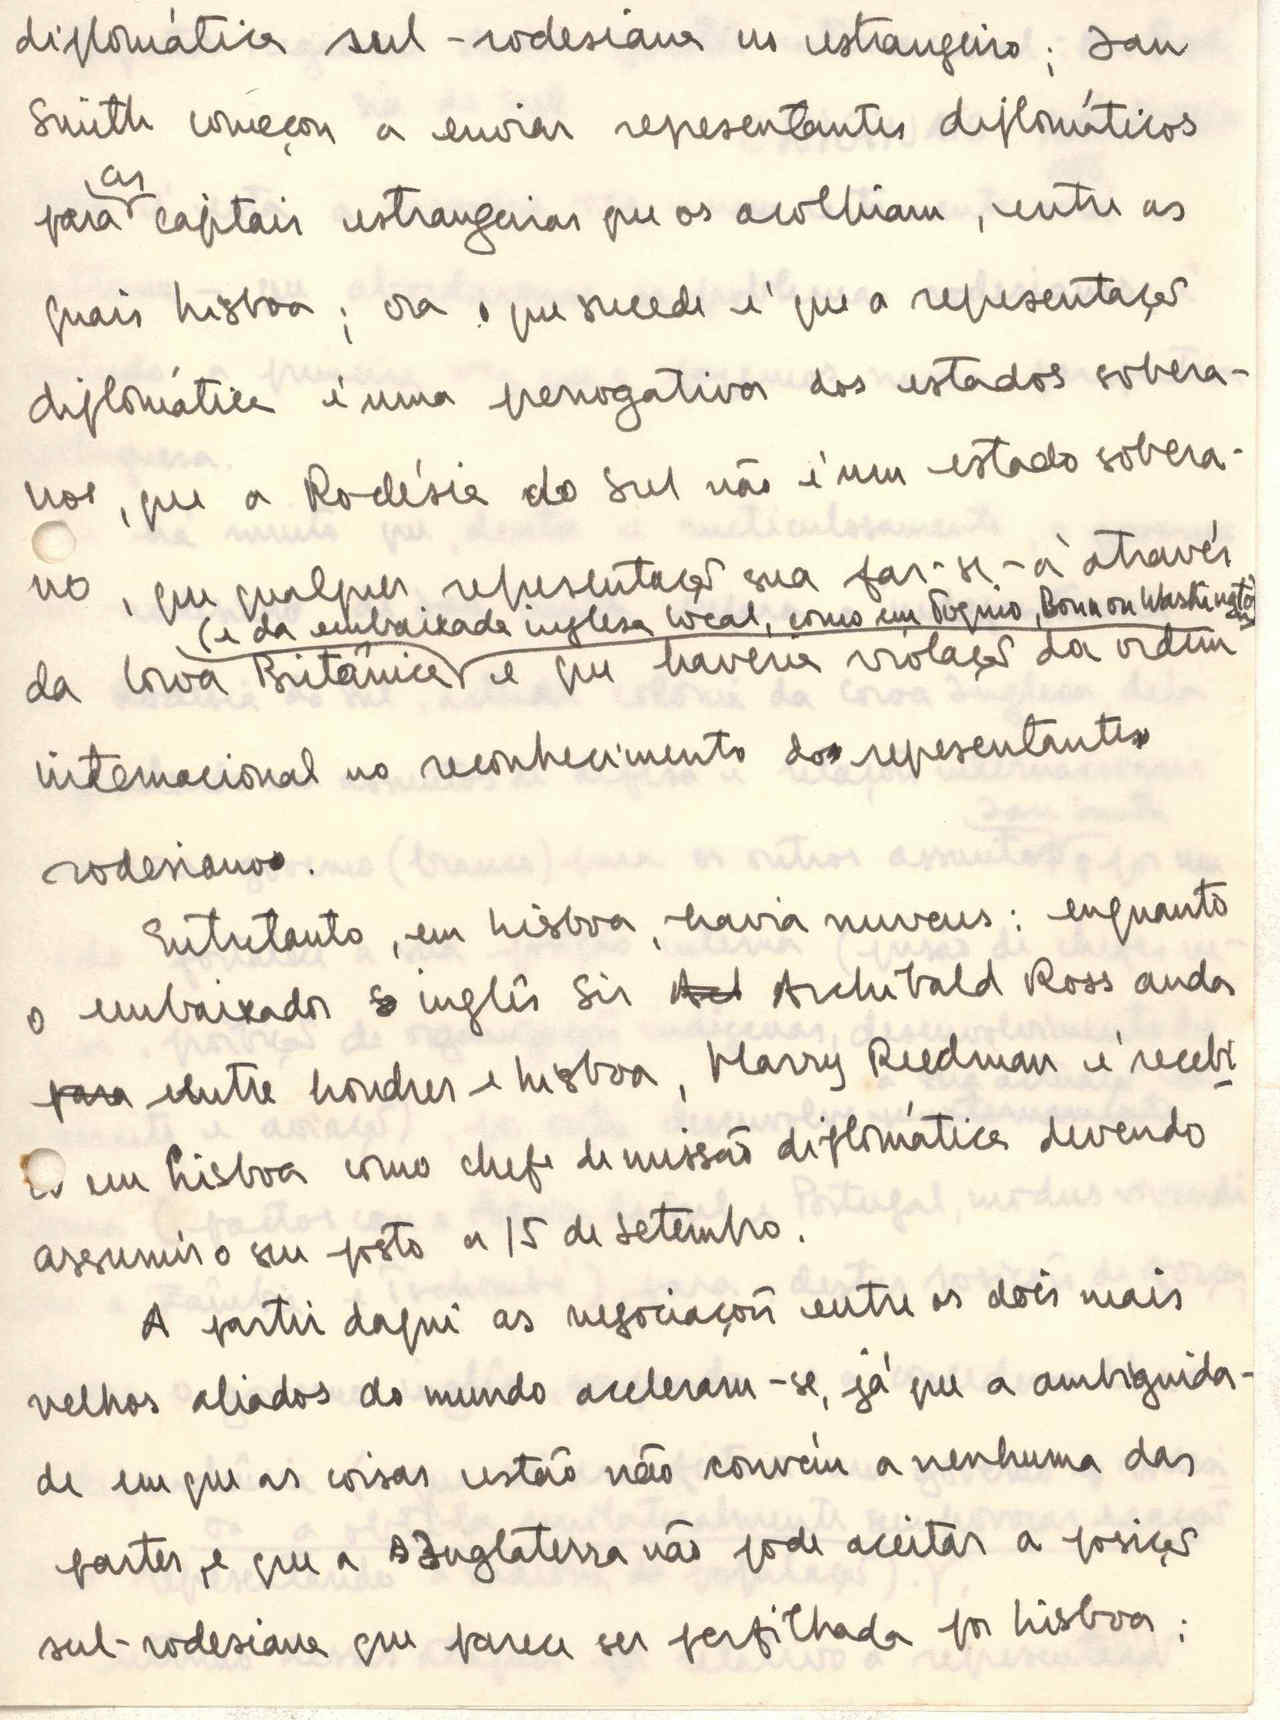 diplomática sul-rodesiana no estrangeiro; Ian
Smith começou a enviar representantes diplomáticos
para as capitais estrangeiras que os acolhiam, entre as
quais Lisboa; ora o que sucede é que a representação
diplomática é uma perrogativa dos estados sobera-
nos, que a Rodésia do Sul não é um estado sobera-
no, que qualquer representação sua far-se-à através
(e da embaixada inglesa local, como em Tóquio, Bonn ou Washington)
da Coroa Britânica e que haveria violação da ordem
internacional no reconhecimento dos representantes
rodesianos.
Entretanto, em Lisboa, havia nuvens: enquanto
o embaixador inglês Sir Archibald Ross anda
para entre Londres e Lisboa, Harry Reedman é recebi
do em Lisboa como chefe de missão diplomática devendo
assumir o seu posto a 15 de Setembro.
A partir daqui as negociações entre os dois mais
velhos aliados do mundo aceleram-se, já que a ambiguida-
de em que as coisas estão não convém a nenhuma das
partes, e que a Inglaterra não pode aceitar a posição
sul-rodesiana que parece ser perfilhada por Lisboa;